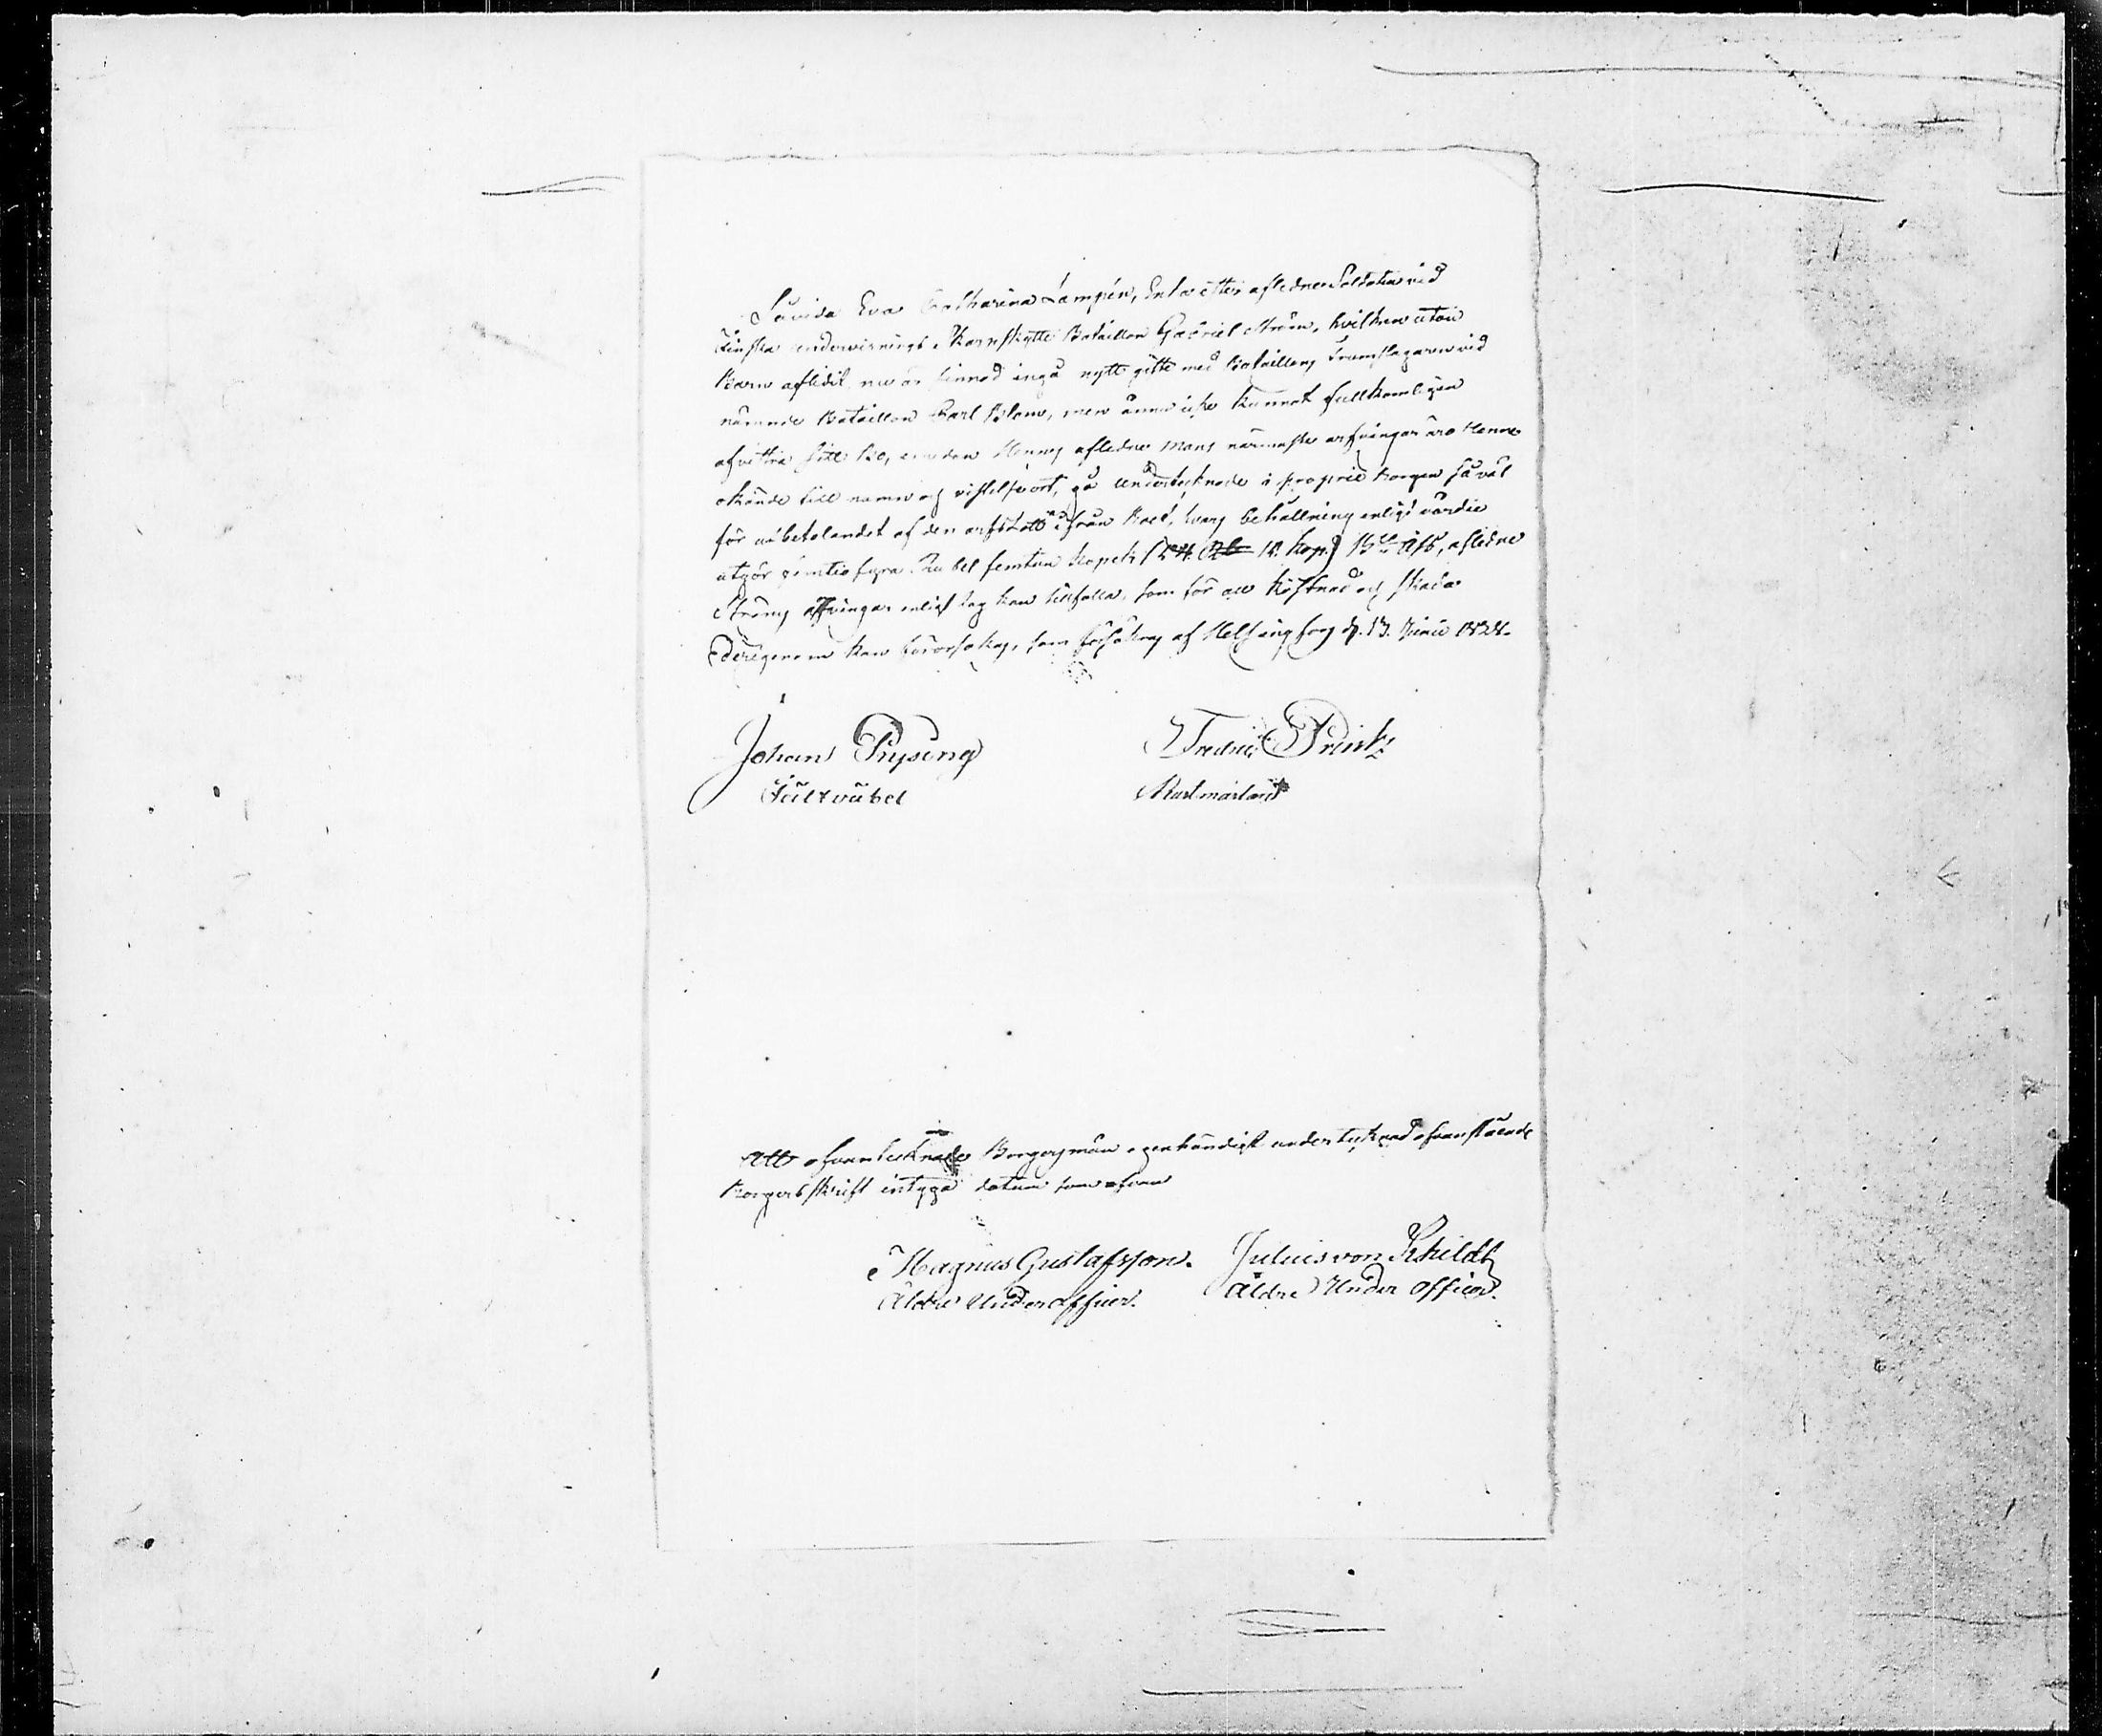 Såvida Eva Catharina Lampén, Enka efter aflidne Soldaten vid
Finska undervisnings Skarpskytte Bataillon Gabriel Ström, hvilken utan
Barn aflidit nu är sinnad ingå nytt gifte med Bataillons Trumslagaren vid
nämnde Bataillon Carl Blom, men ännu icke kunnat fullkomligen
afvittra sitt bo, emedan Hennes aflidne Mans närmaste arfvingar äro Henne
okände till namn och vistelseort, gå undertecknade i proprie borgen så väl
för utbetalandet af den arfslott ifrån boet, hvars behållning enligt värdie
utgör femtio fyra Rubel femton kopek (54 Rb 15 kop.) B:co Ass, aflidne
Ströms arfvingar enligt lag kan tillfalla, som för all kostnad och skada
derigenom kan förorsakas, som försäkras af Helsingfors d. 13. Junii 1824.
Johan Prysing
Fältväbel
Fredric Printz
Rustmästare
Att ofvantecknade Borgesmän egenhändigt undertecknad ofvanstående
Borgesskrift intyga datum som ofvan
Magnus Gustafsson.
Äldre Under officer.
Julius von Schildt
Äldre Under Officer.